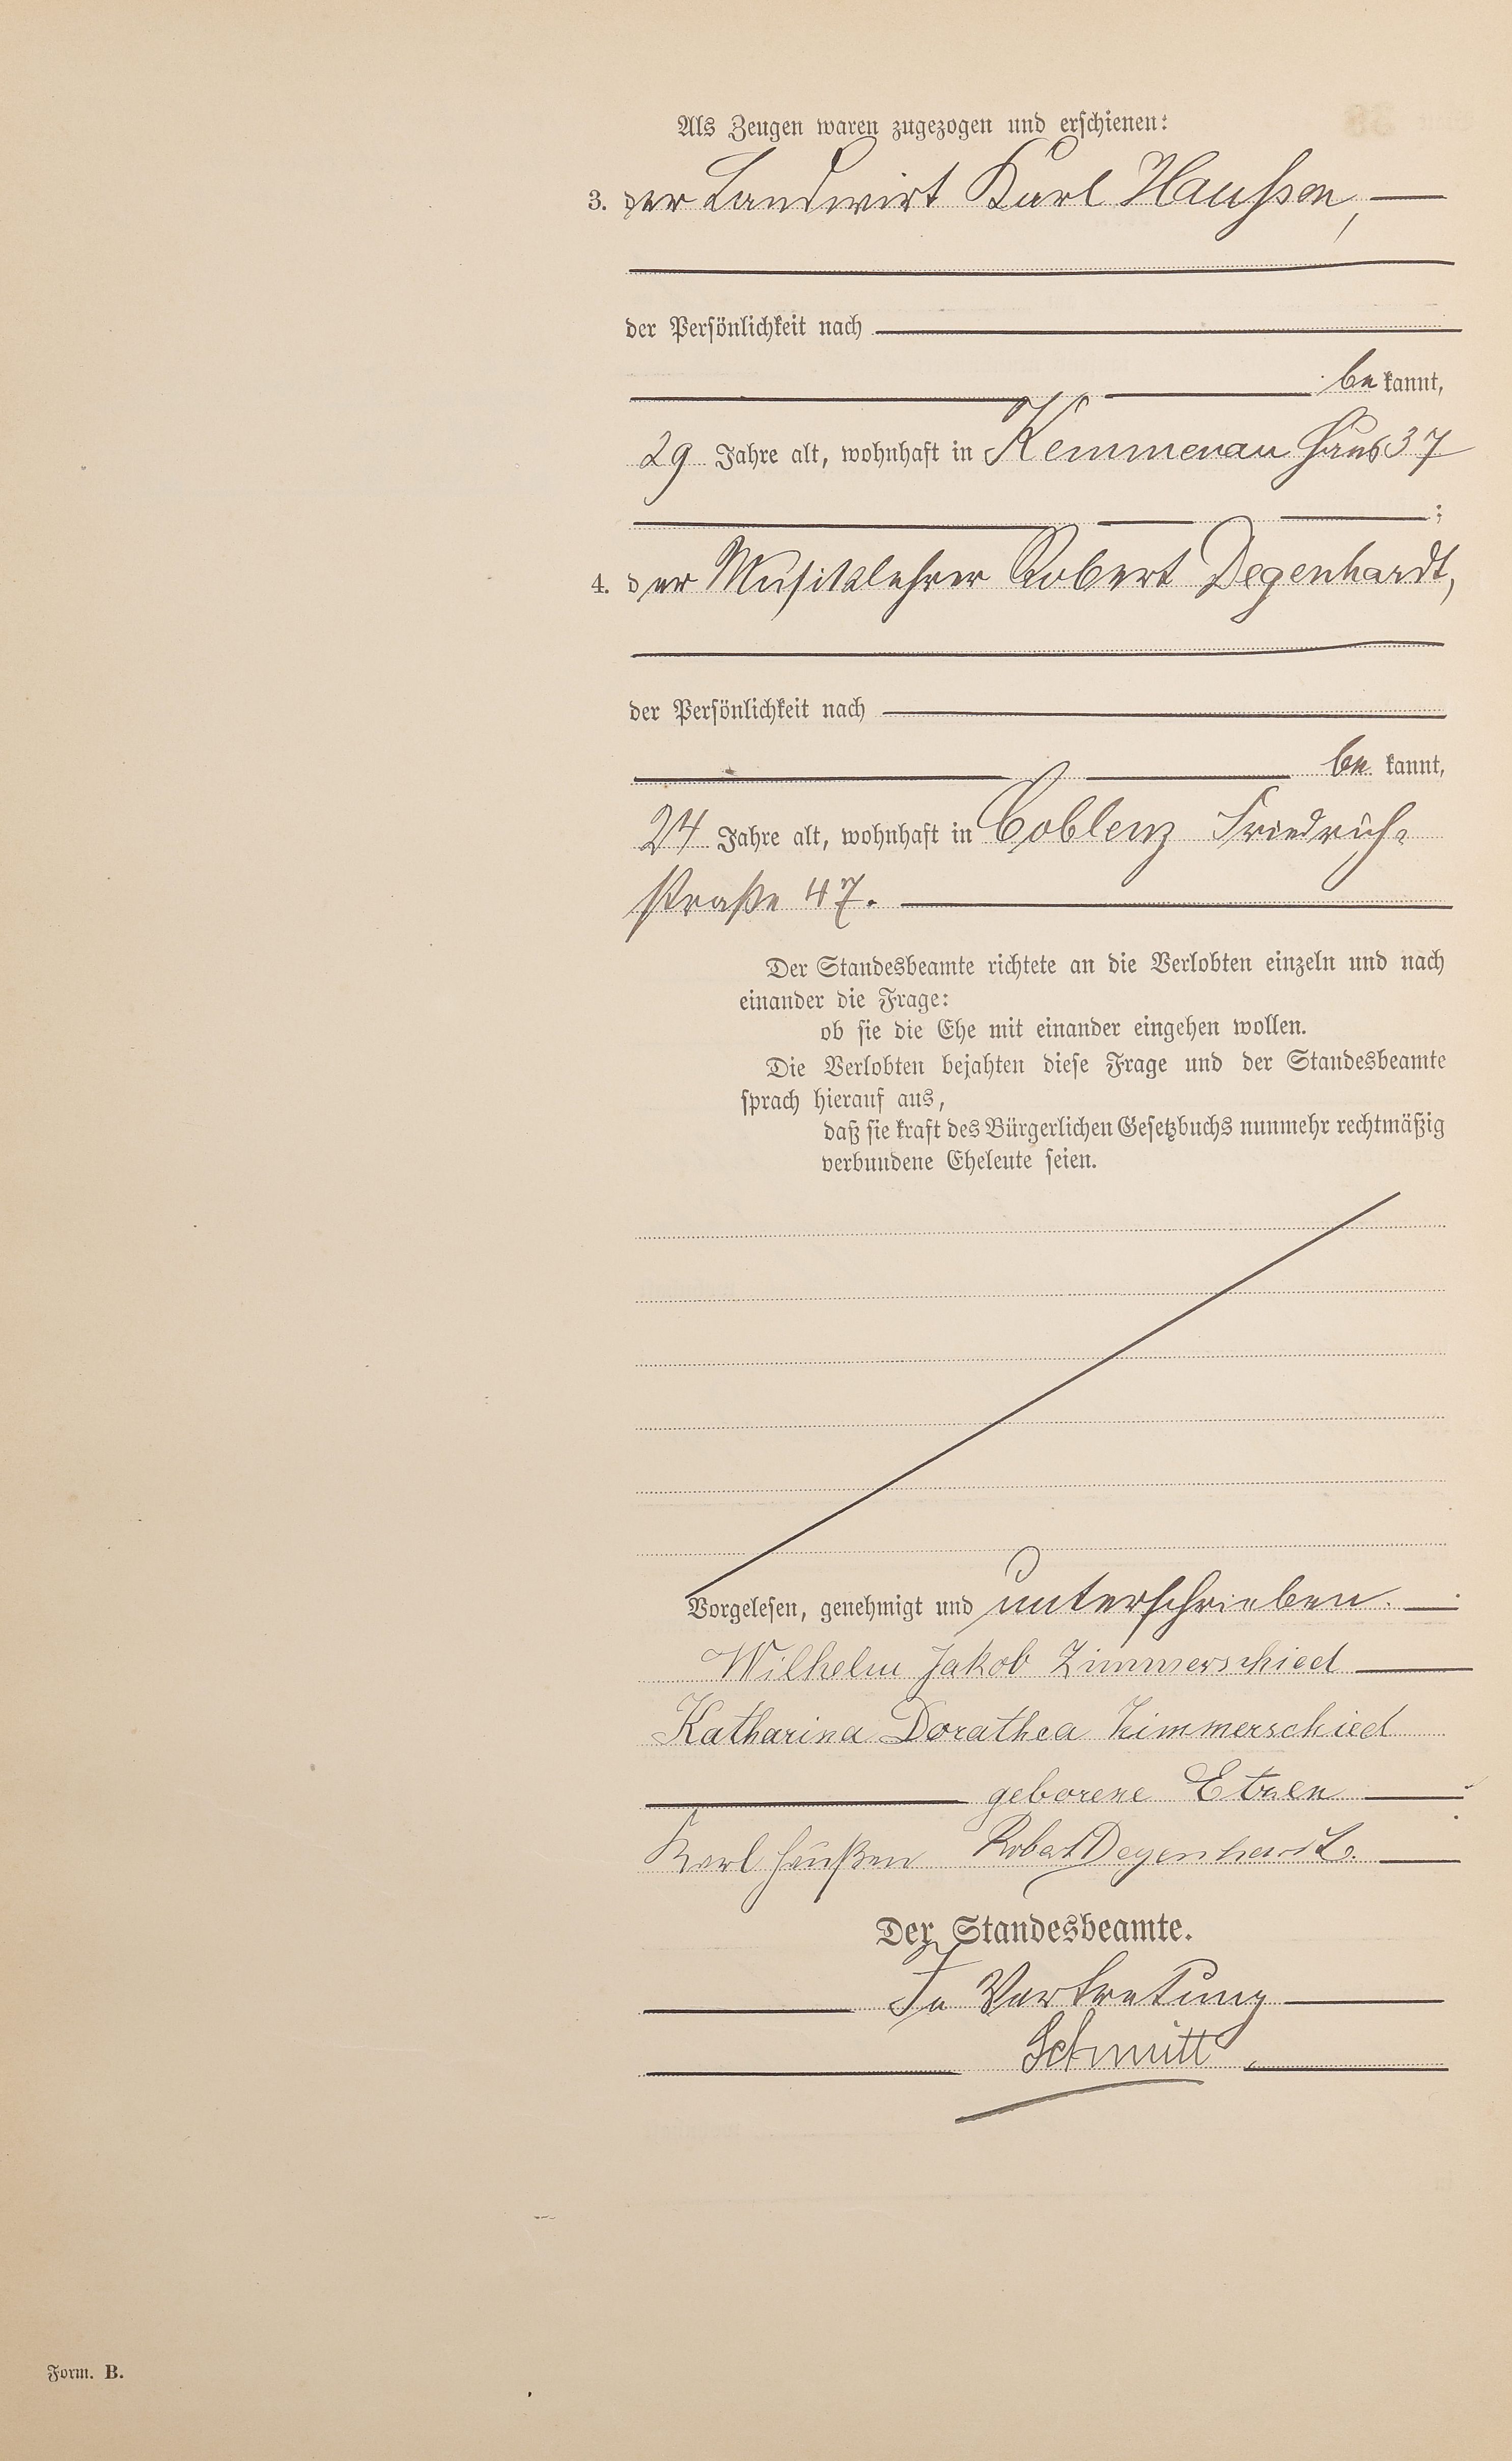 Als Zeugen waren zugezogen und erschienen:
3. der Landwirt Karl Haußen,
der Persönlichkeit nach
bekannt,
29 Jahre alt, wohnhaft in Kemmenau Haus 37
;
4. der Musiklehrer Robert Degenhardt,
der Persönlichkeit nach
bekannt,
24 Jahre alt, wohnhaft in Coblenz Friedrich-
straße 47.
Der Standesbeamte richtete an die Verlobten einzeln und nach
einander die Frage:
ob sie die Ehe mit einander eingehen wollen.
Die Verlobten bejahten diese Frage und der Standesbeamte
sprach hierauf aus,
daß sie kraft des Bürgerlichen Gesetzbuchs nunmehr rechtmäßig
verbundene Eheleute seien.
Vorgelesen, genehmigt und unterschrieben.
Wilhelm Jakob Zimmerschied
Katharina Dorathea Zimmerschied
geborene
Karl Haußen Robert Degenhardt.
Der Standesbeamte.
In Vertretung
Schmitt
Form. B.